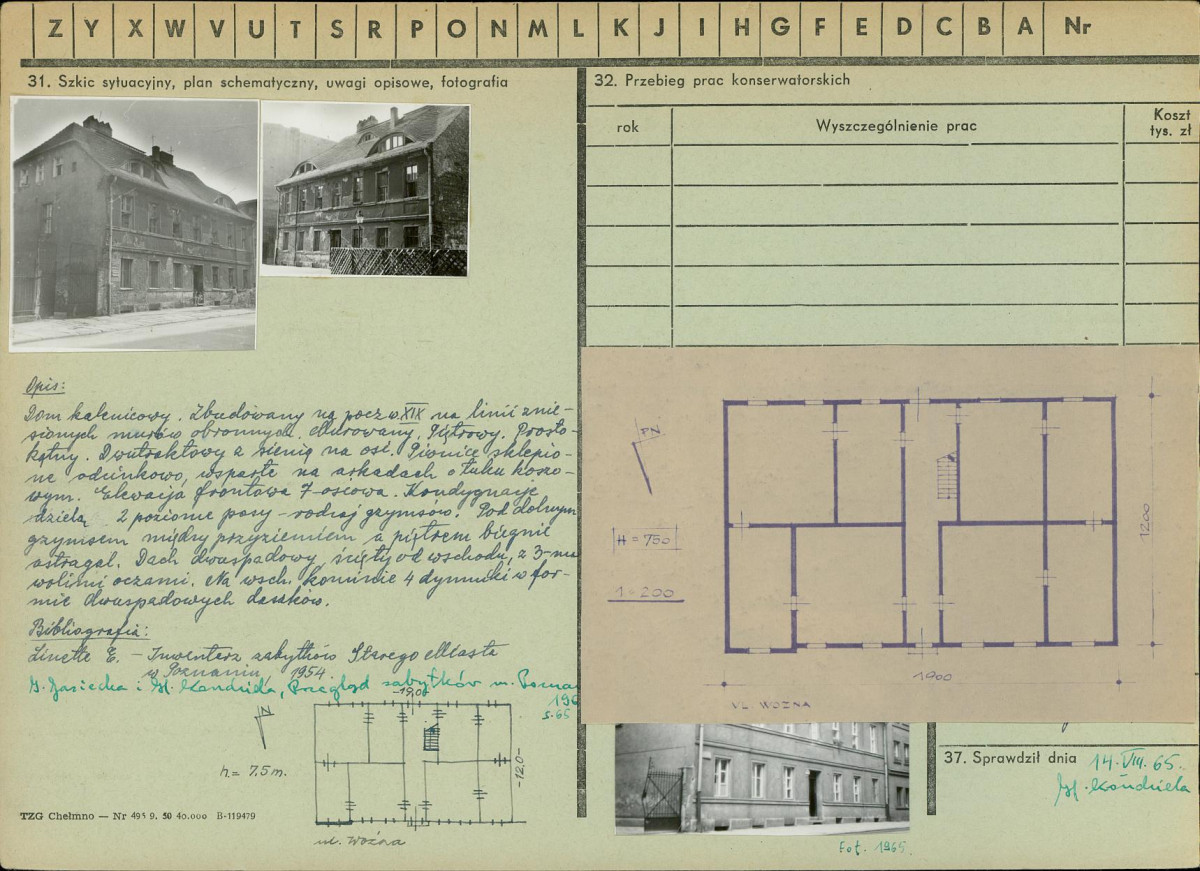 Z Y X W V U T S R P O N M L K J I H G F E D C B A Nr
31. Szkic sytuacyjny, plan schematyczny, uwagi opisowe, fotografia
Opis:
Dom kalenicowy. Zbudowany na pocz. w. XIX na linii znie-
sionych murów obronnych. Murowany. Piętrowy. Prosto-
kątny. Dwutraktowy z sienią na osi. Piwnice sklepio-
ne odcinkowo, wsparte na arkadach o łuku koszo-
wym. Elewacja frontowa 7-osiowa. Kondygnacje
dzielą 2 poziome pasy - rodzaj gzymsów. Pod dolnym
gzymsem między przyziemiem a piętrem biegnie
astragal. Dach dwuspadowy, ścięty od wschodu, z 3-ma
wolimi oczami. Na wsch. kominie 4 dymniki w for-
mie dwuspadowych daszków.
Bibliografia:
Linette E. - Inwentarz zabytków Starego Miasta
w Poznaniu, 1954.
i M. Kondziela, Przegląd zabytków m. Pozna
196
s. 65
-19,00
N
h = 7,5 m.
-12,0-
ul. Woźna
TZG Chełmno — Nr 495 9. 50 40.000 B-119479
32. Przebieg prac konserwatorskich
rok
Wyszczególnienie prac
Koszt
tys. zł
PN
H = 750
1 = 200
1200
1900
UL WOŹNA
Fot. 1965.
37. Sprawdził dnia 14. VIII. 65.
M. Kondziela